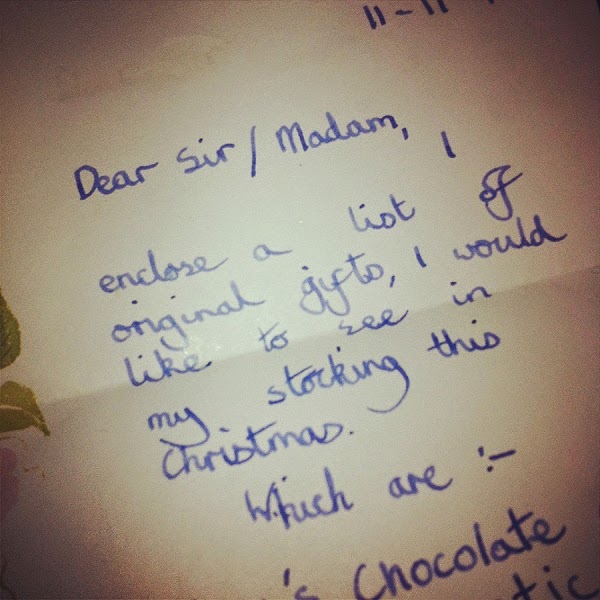 11-11
Dear Sir / Madam, I
enclose a list of
original gifts, I would
like to see in
my stocking this
Christmas.
Which are :-
's Chocolate
tic